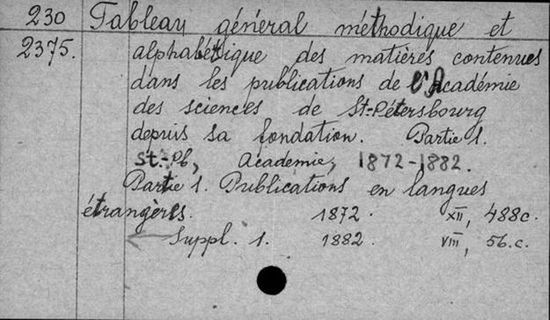 230 Tableau général méthodique et
2375. alphabétique des matières contenues
dans les publications de l'Académie
des sciences de St-Pétersbourg
depuis sa fondation. Partie 1.
St.-Pb, Academie, 1872-1882.
Partie 1. Publications en langues
étrangères. 1872. XII, 488c.
Suppl. 1. 1882. VIII, 56.c.